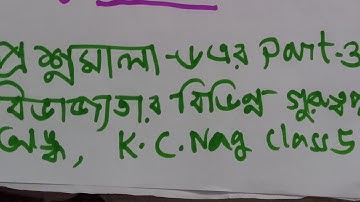 প্রশ্নমালা-৮ এর Part-3
বিভাজ্যতার বিভিন্ন গুরুত্বপূ
অঙ্ক, K.C.Nag Class 5